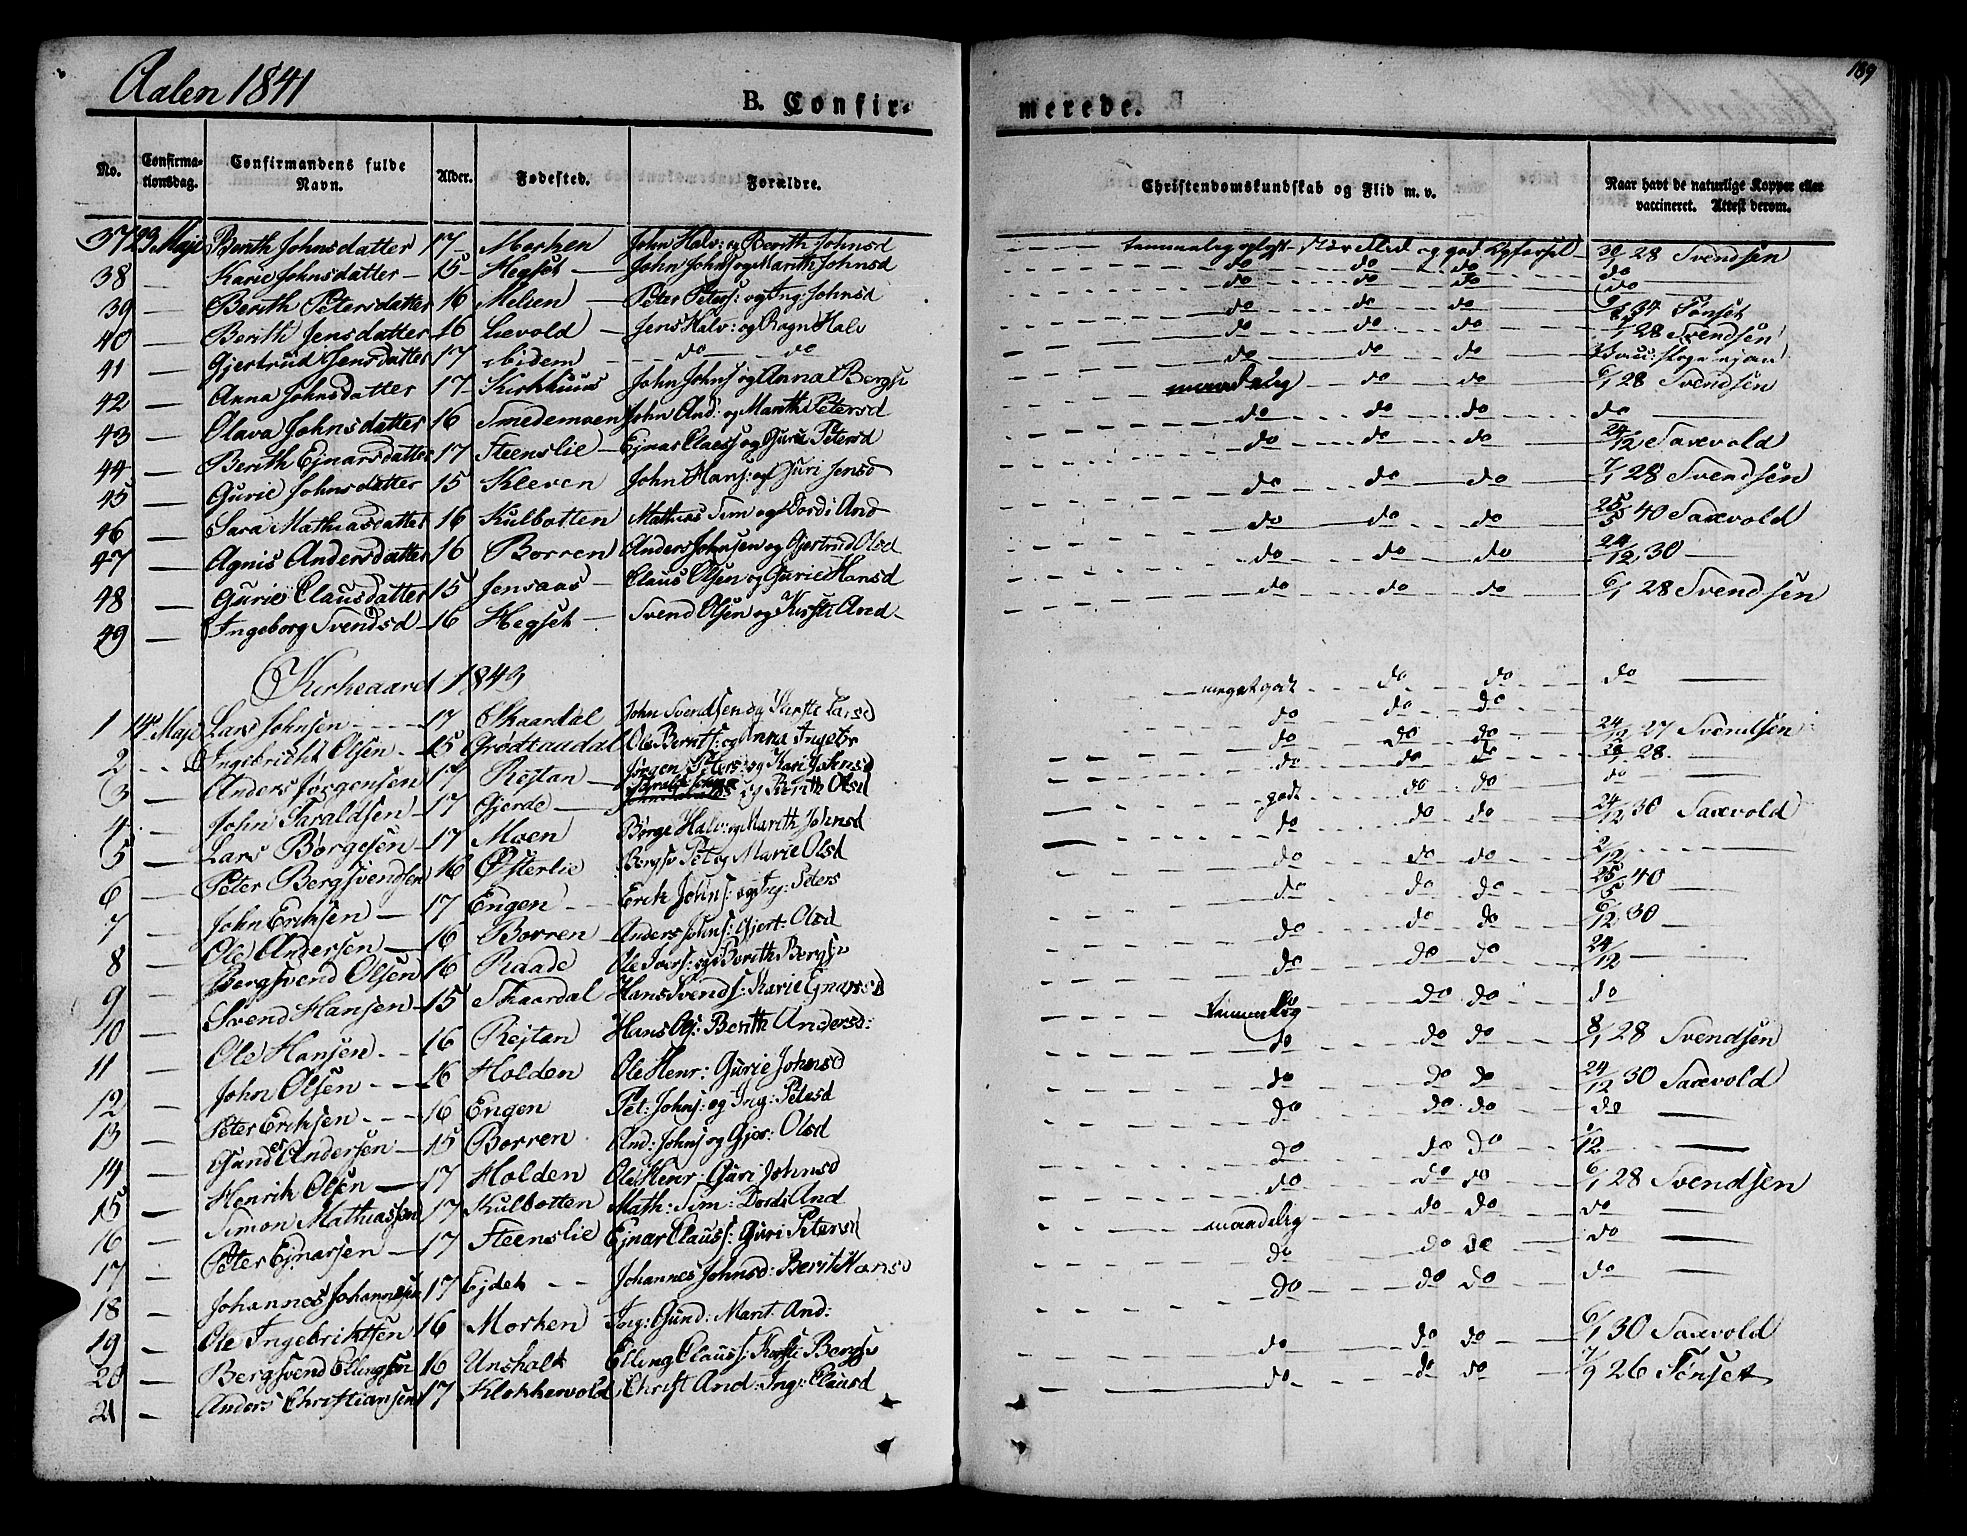 Aalen 1841
B. Confir-
merede.
189
No. Confirma-tionsdag. Confirmandens fulde Navn. Alder. Fødested. Forældre. Christendomskundskab og Flid m. v. Naar havt de naturlige Kopper eller vaccineret. Attest derom.
37 23 Maje Berith Johnsdatter 17 Morken John Halv: og Berith Johnsd og god Opførsel 30/1 28 Svendsen
38 — Karie Johnsdatter 15 Hegset John Johns og Marith Johnsd do do do do
39 — Berith Petersdatter 16 Melien Peter Peters: og Ing: Johnsd do do do do
40 — Berith Jensdatter 16 Lievold Jens Halv: og Ragn Halv do do do 34 Tønset
41 — Gjertrud Jensdatter 17 ibidem do do do do do 28 Svendsen
42 — Anna Johnsdatter 17 Kirkhuus John Johns og Anna Bergs: do do do
43 — Olava Johnsdatter 16 Smedemoen John And: og Marith Petersd maadelig do do 6/1 28 Svendsen
44 — Berith Ejnarsdatter 17 Steenslie Ejnar Claess og Guru Petersd do do do do
45 — Gurie Johnsdatter 15 Kleven John Hans: og Guri Jensd do do do 24/12 Saxvold
46 — Sara Mathiasdatter 16 Kulbotten Mathias Sim og Dordi And do do do 7/1 28 Svendsen
47 — Agnis Andersdatter 16 Borren Anders Johnsen og Gjertrud Olsd do do do 25/5 40 Saxvold
48 — Gurie Clausdatter 15 Jensaas Claus Olsen og Gurie Hansd do do do 24/12 30 —
49 — Ingeborg Svendsd 16 Hegset Svend Olsen og Kirsti And do do do 6/1 28 Svendsen
Kirkeaaret 1843
1 14 Maje Lars Johnsen 17 Skaardal John Svendsen og Kirsti Larsd meget godt do do do
2 Ingebricht Olsen 15 Grødtaadal Ole Bernts: og Anna Ingebr do do do
3 — Anders Jørgensen 17 Rejtan Jørgen Peters: og Kari Johnsd do do do 24/12 27 Svendsen
4 — John Taraldsen 17 Gjerde og Berith Olsd do do do 28 —
5 — Lars Børgesen 17 Moen Børge Halv: og Marith Johnsd godt do do do
6 — Peter Bergsvendsen 16 Østerlie Bergsv Pet og Marie Olsd do do do 24/12 30 Saxvold
7 — John Eriksen 17 Engen Erik Johns: og Ing: Peters do do do 2/12
8 — Ole Andersen 16 Borren Anders Johns: Gjert: Olsd do do do 25/5 40 —
9 — Bergsvend Olsen 16 Raade Ole Ivers: og Berith Bergs: do do do 6/12 30 —
10 — Svend Hansen 15 Skaardal Hans Svends: Karie Ejnarsd do do do 24/12 —
11 — Ole Hansen 16 Rejtan Hans Ols: Berith Andersd: do do do
12 — John Olsen 16 Holden Ole Henr: Gurie Johnsd do do do 8/1 28 Svendsen
13 — Peter Eriksen 16 Engen Pet: Johns: og Ing: Petersd do do do 24/12 30 Saxvold
14 — Gunder Andersen 15 Borren And: Johns og Gjer: Olsd do do do do —
15 — Henrik Olsen 17 Holden Ole Henr: Guri Johnsd do do do —
16 — Simon Mathiassen 17 Kulbotten Math: Sim: Dordi And do do do 6/1 28 Svendsen
17 — Peter Ejnarsen 17 Steenslie Ejnar Clauss: Guri Petersd maadelig do do do —
18 — Johannes Johannesen 17 Ejdet Johannes Johnsd: Berit Hansd do do do do —
19 — Ole Ingebriktsen 16 Morken Ing: Gund: Marit And: do do do do —
20 — Bergsvend Ellingsen 16 Unsholt Elling Clauss: Kirsti Bergs: do do do 6/1 30 Saxvold
21 — Anders Christiansen 17 Klokkervold Christ And: Ing: Clausd do do do 7/9 26 Tønset